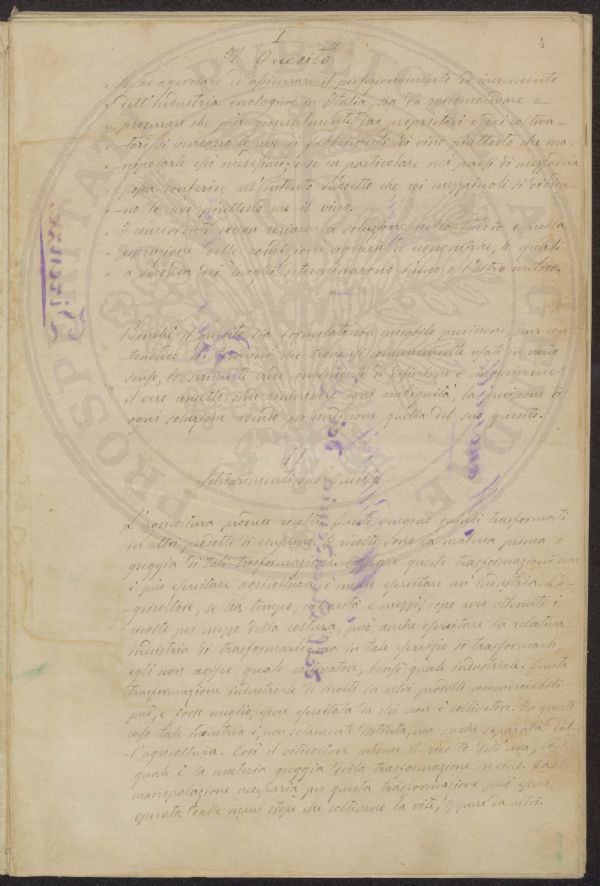 4
I
Il Quesito
" Per agevolare ed assicurare il perfezionamento ed incremento
" dell'industria enologica in Italia, sia da raccomandare e
" procurare che più generalmente dai proprietari e dai coltiva-
" tori si vendano le uve ai fabbricanti di vino piuttosto che ma-
" nipolarle essi medesimi; e se in particolare nei paesi di mezzadria
" possa conferire all'intento suddetto che coi mezzaiuoli si divida-
" no le uve piuttosto che il vino.
" I concorrenti devon cercare la soluzione nello studio e nella
" esposizione delle condizioni agrarie ed economiche, le quali
" a seconda dei luoghi determinarono l'uno o l'altro metodo.
Benchè il quesito sia formulato con mirabile precisione, pure con-
tenendo dei termini che trovansi comunemente usati in vario
senso, lo scrivente crede conveniente di definirne e circoscriverne
il vero concetto, onde rimuovere ogni ambiguità, la precisione di
ogni soluzione avendo per condizione quella del suo quesito.
II
Schiarimenti sul Quesito
L'agricoltura produce ricolti. Questi vengono quindi trasformati
in altri prodotti di consumo. I ricolti sono la materia prima o
greggia di tali trasformazioni. Operare queste trasformazioni non
è più esercitare agricoltura, è invece esercitare un'industria. L'a-
gricoltore, se ha tempo, capacità e mezzi, dopo aver ottenuto i
ricolti per mezzo della coltura, può anche esercitare la relativa
industria di trasformarli; ma in tale esercizio di trasformarli,
egli non agisce quale coltivatore, bensì quale industriale. Questa
trasformazione industriale di ricolti in altri prodotti commerciabili
può, e forse meglio, essere esercitata da chi non è coltivatore. In questo
caso tale industria è non solamente distinta, ma anche separata dal-
l'agricoltura. Così il viticoltore produce il ricolto dell'uva, la
quale è la materia greggia della trasformazione in vino. La
manipolazione necessaria per questa trasformazione può essere
operata dalle mani stesse che coltivano la vite, oppure da altri.
PROSPERITATI PUBLICAE AUGENDAE